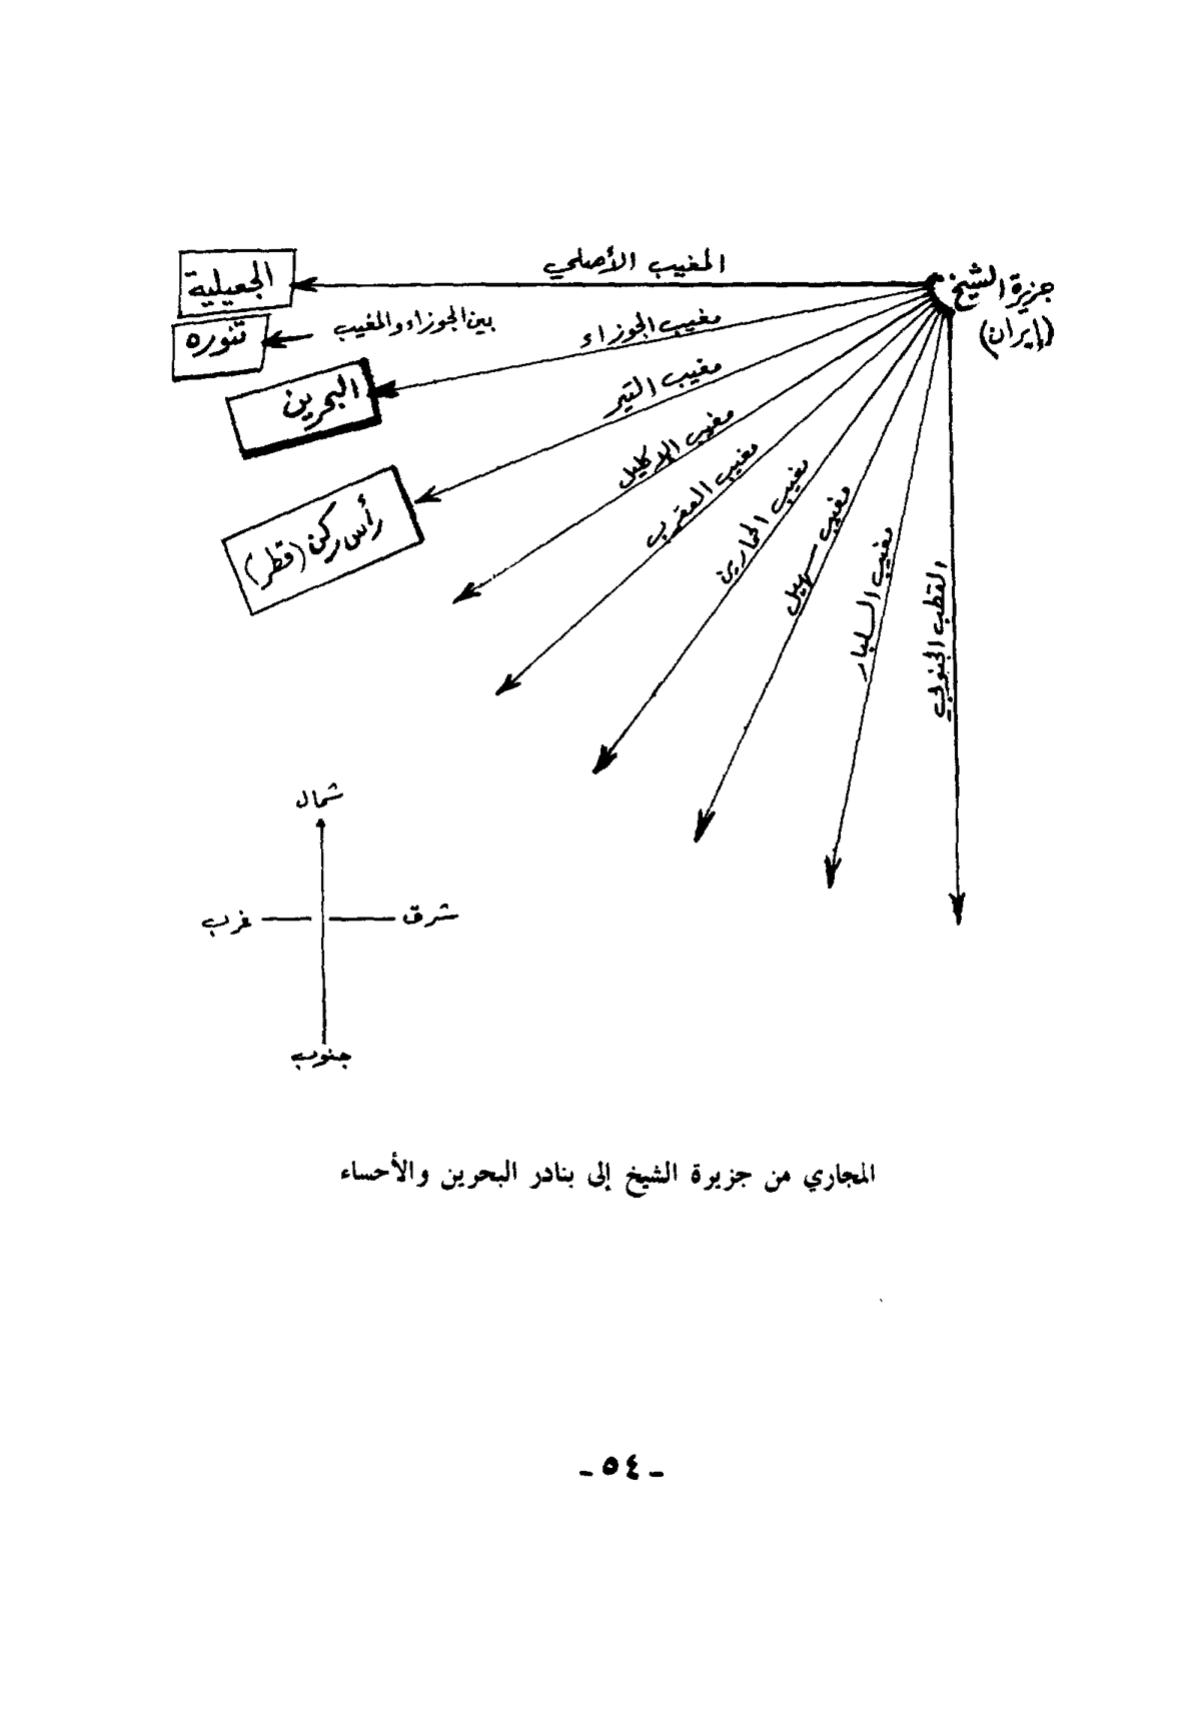 المغيب الأصلي
جزيرة الشيخ
(إيران)
الجعيلية
بين الجوزاء والمغيب
تنوره
مغيب الجوزاء
البحرين
مغيب التير
رأس ركن (قطر)
مغيب الإكليل
مغيب العقرب
مغيب الحمارين
مغيب سهيل
مغيب السلبار
القطب الجنوبي
شمال
شرق
غرب
جنوب
المجاري من جزيرة الشيخ إلى بنادر البحرين والأحساء
- ٥٤ -